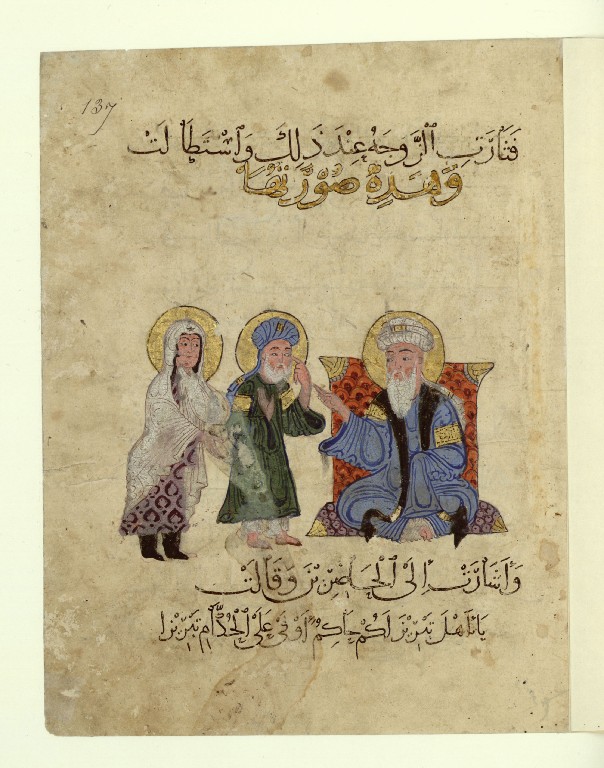 137
فَثَارَتِ الزَّوجَةُ عِنْدَ ذَلِكَ وَاسْتَطَالَتْ
وَهَذِهِ صُوْرَتُهَا
وَأَشَارَتْ إِلَى الْحَاضِرِيْنَ وَقَالَتْ
يَا أَهْلَ تَبْرِيْزَ لَكُمْ حَاكِمٌ أَوْفَى عَلَى الْحُكَّامِ تَبْرِيْزَا